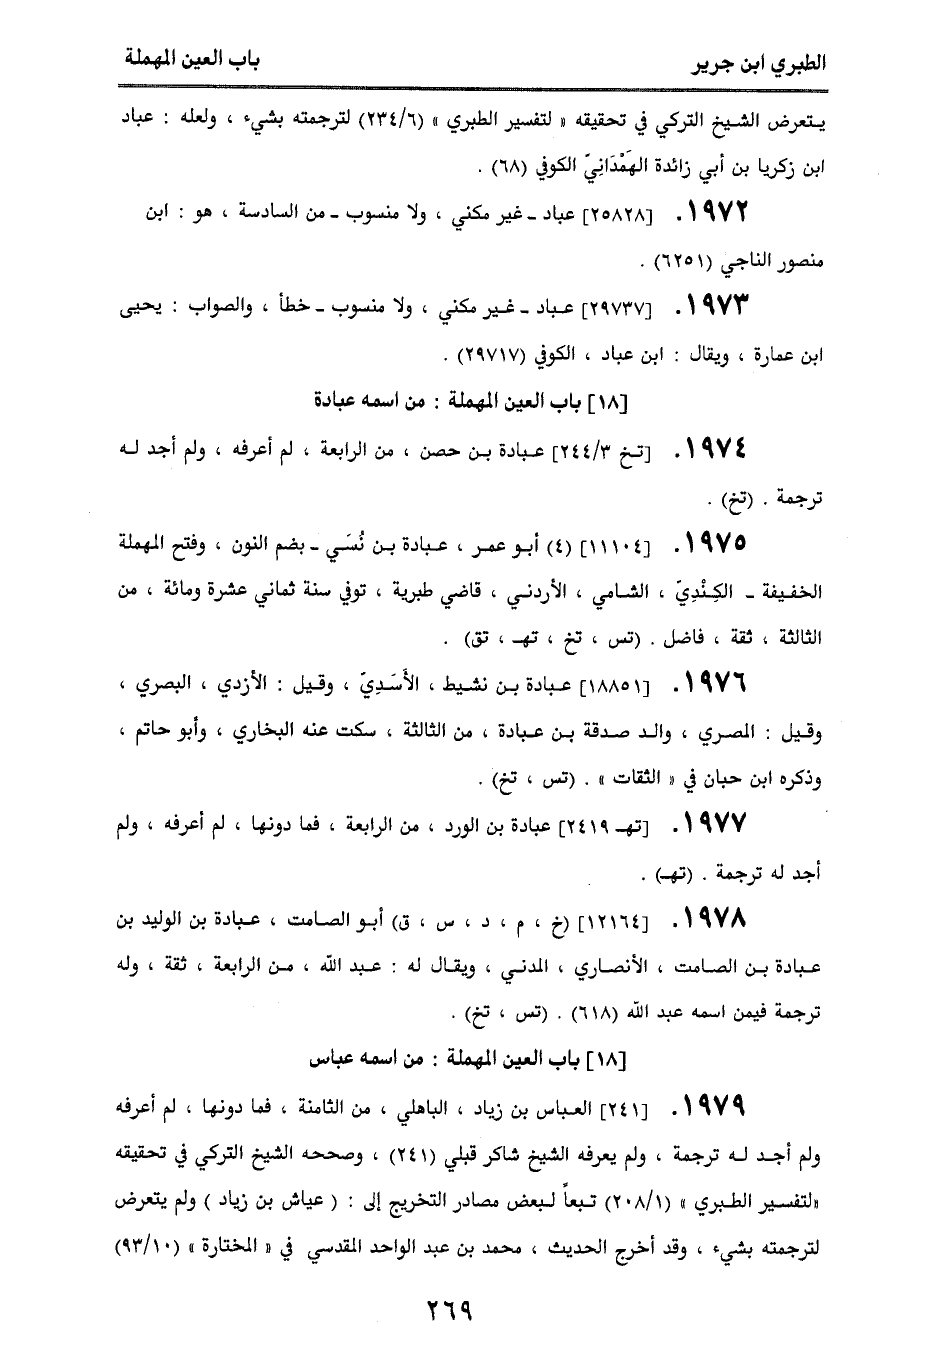 الطبري ابن جرير
باب العين المهملة
يتعرض الشيخ التركي في تحقيقه « لتفسير الطبري » (٢٣٤/٦) لترجمته بشيء ، ولعله : عباد
ابن زكريا بن أبي زائدة الهَمْدَانِيّ الكوفي (٦٨) .
١٩٧٢. [٢٥٨٢٨] عباد ـ غير مكني ، ولا منسوب ـ من السادسة ، هو : ابن
منصور الناجي (٦٢٥١) .
١٩٧٣. [٢٩٧٣٧] عباد ـ غير مكني ، ولا منسوب ـ خطأ ، والصواب : يحيى
ابن عمارة ، ويقال : ابن عباد ، الكوفي (٢٩٧١٧) .
[١٨] باب العين المهملة : من اسمه عبادة
١٩٧٤. [تخ ٢٤٤/٣] عبادة بن حصن ، من الرابعة ، لم أعرفه ، ولم أجد له
ترجمة . (تخ) .
١٩٧٥. [١١١٠٤] (٤) أبو عمر ، عبادة بن نُسَي ـ بضم النون ، وفتح المهملة
الخفيفة ـ الكِنْدِيّ ، الشامي ، الأردني ، قاضي طبرية ، توفي سنة ثماني عشرة ومائة ، من
الثالثة ، ثقة ، فاضل . (تس ، تخ ، تهـ ، تق) .
١٩٧٦. [١٨٨٥١] عبادة بن نشيط ، الأَسَدِيّ ، وقيل : الأزدي ، البصري ،
وقيل : المصري ، والد صدقة بن عبادة ، من الثالثة ، سكت عنه البخاري ، وأبو حاتم ،
وذكره ابن حبان في « الثقات » . (تس ، تخ) .
١٩٧٧. [تهـ ٢٤١٩] عبادة بن الورد ، من الرابعة ، فما دونها ، لم أعرفه ، ولم
أجد له ترجمة . (تهـ) .
١٩٧٨. [١٢١٦٤] (خ ، م ، د ، س ، ق) أبو الصامت ، عبادة بن الوليد بن
عبادة بن الصامت ، الأنصاري ، المدني ، ويقال له : عبد الله ، من الرابعة ، ثقة ، وله
ترجمة فيمن اسمه عبد الله (٦١٨) . (تس ، تخ) .
[١٨] باب العين المهملة : من اسمه عباس
١٩٧٩. [٢٤١] العباس بن زياد ، الباهلي ، من الثامنة ، فما دونها ، لم أعرفه
ولم أجد له ترجمة ، ولم يعرفه الشيخ شاكر قبلي (٢٤١) ، وصححه الشيخ التركي في تحقيقه
«لتفسير الطبري » (٢٠٨/١) تبعاً لبعض مصادر التخريج إلى : ( عياش بن زياد ) ولم يتعرض
لترجمته بشيء ، وقد أخرج الحديث ، محمد بن عبد الواحد المقدسي في « المختارة » (٩٣/١٠)
٢٦٩